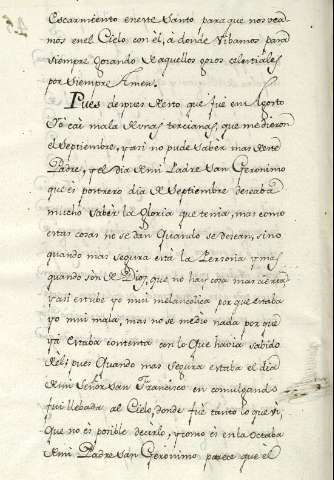 escarmiento eneste Santo para que nos vea
mos enel Cielo con él, á donde Vibamos para
siempre gozando de aquellos gozos celestiales
por siempre Amen.
Pues despues desto que fue en Agosto
Yo caí mala de unas tercianas, que me dieron
el Septiembre, y asi no pude saber mas deste
Padre, y el dia de mi Padre San Geronimo
que es postrero dia de Septiembre deseaba
mucho saber la gloria que tenia, mas como
estas cosas no se dan Quando se desean, sino
quando mas segura está la Persona y mas
quando son de Dios, que no hay cosa mas acertada
y asi estube yo mui melancolica por que estaba
yo mui mala, mas no se me dio nada por que
ya Estaba contenta con lo Que havia sabido
del; pues Quando mas segura estaba el dia
de mi Señor San Francisco en comulgando
fui llebada al Cielo, donde fue tanto lo que vi,
Que no es posible decirlo, y como es en la Octaba
de mi Padre San Geronimo parece que él